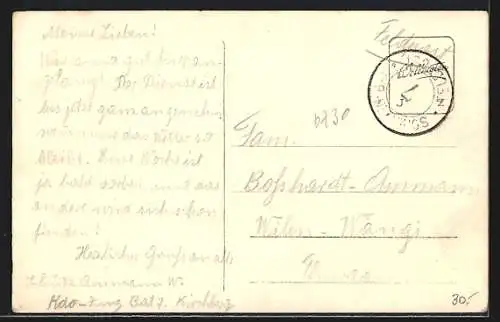 Meine Lieben!
Wir sind gut hier an-
gelangt. Der Dienst ist
bis jetzt ganz angenehm
wenn nur das Wetter so
bleibt. Eine Woche ist
ja bald vorbei und das
andere wird sich schon
finden!
Herzliche Grüsse an alle
Ammann W.
Kdo-Zug Bat 7. Kirchberg
Feldpost
6230
Fam.
Boßhardt-Ammann
Wilen-Wängi
30.-